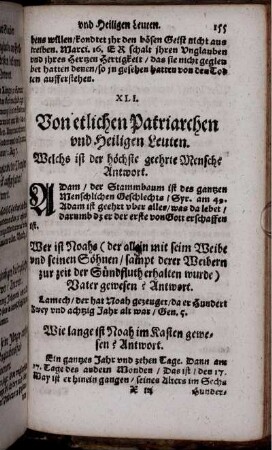 vnd Heiligen Leuten. 155
bens willen/kondtet jhr den bösen Geist nicht aus
treiben. Marci. 16. ER schalt jhren Vnglauben
vnd jhres Hertzen Hertigkeit / das sie nicht gegleu
bet hatten denen/so jn gesehen hatten von den Tod
ten aufferstehen.
XLI.
Von etlichen Patriarchen
vnd Heiligen Leuten.
Welchs ist der höchste geehrte Mensche
Antwort.
ADam / der Stammbaum ist des gantzen
Menschlichen Geschlechts / Syr. am 49.
Adam ist geehrt vber alles/was da lebet/
darumb dz er der erste von Gott erschaffen
ist.
Wer ist Noahs (der allein mit seim Weibe
vnd seinen Söhnen/ sampt derer Weibern
zur zeit der Sündfluth erhalten wurde)
Vater gewesen? Antwort.
Lamech/der hat Noah gezeuget/da er Hundert
zwey vnd achtzig Jahr alt war/ Gen. 5.
Wie lange ist Noah im Kasten gewe-
sen? Antwort.
Ein gantzes Jahr vnd zehen Tage. Dann am
17. Tage des andern Monden / Das ist / den 17.
May ist er hinein gangen / seines Alters im Sechs
Hunder-